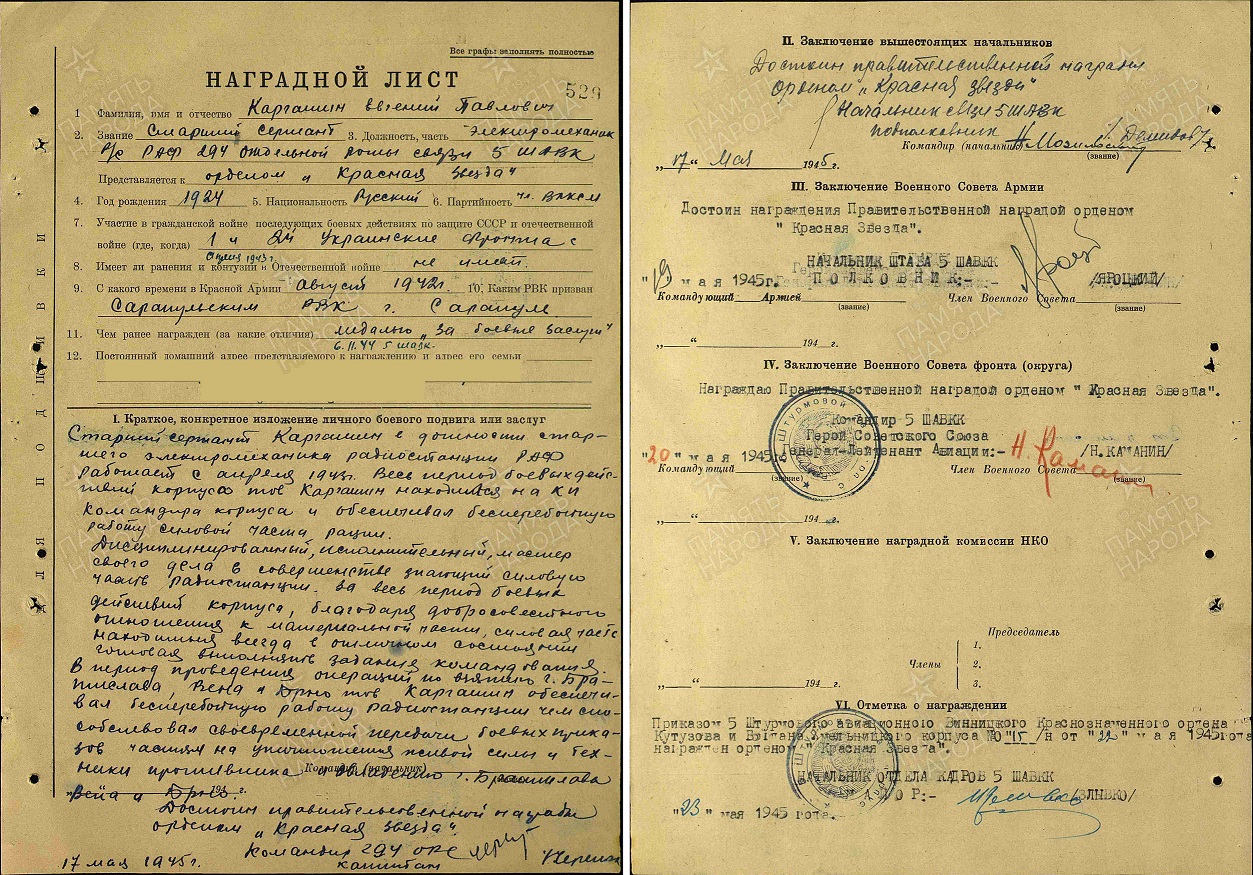 Все графы заполнять полностью
НАГРАДНОЙ ЛИСТ
529
1 Фамилия, имя и отчество Каргашин Евгений Павлович
2. Звание Старший сержант 3. Должность, часть электромеханик
р/с РАФ 294 отдельной роты связи 5 ШАВК
Представляется к орденом "Красная Звезда"
4. Год рождения 1924 5. Национальность Русский 6. Партийность чл. ВЛКСМ
7. Участие в гражданской войне последующих боевых действиях по защите СССР и отечественной
войне (где, когда) 1 и 2й Украинские фронта с
апреля 1943г.
8. Имеет ли ранения и контузии в Отечественной войне не имеет.
9. С какого времени в Красной Армии август 1942г. 10. Каким РВК призван
Сарапульским РВК г. Сарапул
11. Чем ранее награжден (за какие отличия) медалью "За боевые заслуги"
6.11.44 5 шавк.
12. Постоянный домашний адрес представляемого к награждению и адрес его семьи
ДЛЯ ПОДШИВКИ
I. Краткое, конкретное изложение личного боевого подвига или заслуг
Старший сержант Каргашин в должности стар-
шего электромеханика радиостанции РАФ
работает с апреля 1943г. Весь период боевых дейс-
твий корпуса тов Каргашин находился на КП
командира корпуса и обеспечивал бесперебойную
работу силовой части рации.
Дисциплинированный, исполнительный, мастер
своего дела в совершенстве знающий силовую
часть радиостанции. За весь период боевых
действий корпуса, благодаря добросовестного
отношения к материальной части, силовая часть
находилась всегда в отличном состоянии
готовая выполнять задания командования.
В период проведения операций по взятию г. Бра-
тислава, Вена и Брно тов Каргашин обеспечи-
вал бесперебойную работу радиостанции чем спо-
собствовал своевременной передачи боевых прика-
зов частям на уничтожения живой силы и тех-
ники противника и овладению г. Братислава
Командир (начальник)
Вена и Брно.
194 г.
Достоин правительственной награды
орденом "Красная Звезда".
Командир 294 орс
17 мая 1945г. капитан
II. Заключение вышестоящих начальников
Достоин правительственной награды
орденом "Красная Звезда"
Начальник связи 5 ШАВК
подполковник
Командир (начальник)
(звание)
"17" Мая 1945г.
III. Заключение Военного Совета Армии
Достоин награждения Правительственной наградой орденом
" Красная Звезда".
НАЧАЛЬНИК ШТАБА 5 ШАВКК
ПОЛКОВНИК:- /ЯРОЦКИЙ/
"19" мая 1945г.
Командующий Армией Член Военного Совета
(звание) (звание)
"__" 194 г.
IV. Заключение Военного Совета фронта (округа)
Награждаю Правительственной наградой орденом " Красная Звезда".
Командир 5 ШАВКК
Герой Советского Союза
Генерал-Лейтенант Авиации:- Н. Каманин /Н.КАМАНИН/
"20" мая 1945г.
Командующий Член Военного Совета
(звание) (звание)
"__" 194 г.
V. Заключение наградной комиссии НКО
Председатель
Члены
1.
2.
3.
"__" 194 г.
VI. Отметка о награждении
Приказом 5 Штурмового авиационного Винницкого Краснознаменного ордена
Кутузова и Богдана Хмельницкого корпуса № "15"/н от "22" мая 1945года
награжден орденом " Красная Звезда".
НАЧАЛЬНИК ОТДЕЛА КАДРОВ 5 ШАВКК
"23" мая 1945 года.
ПАМЯТЬ НАРОДА